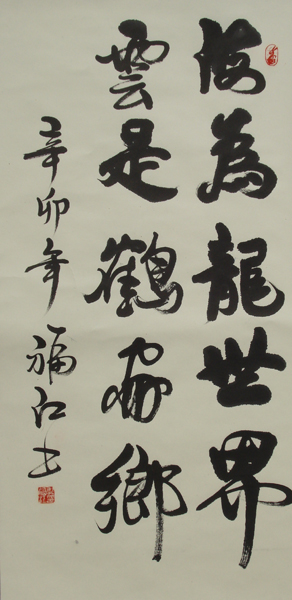 海為龍世界
雲是鶴家鄉
辛卯年福江書